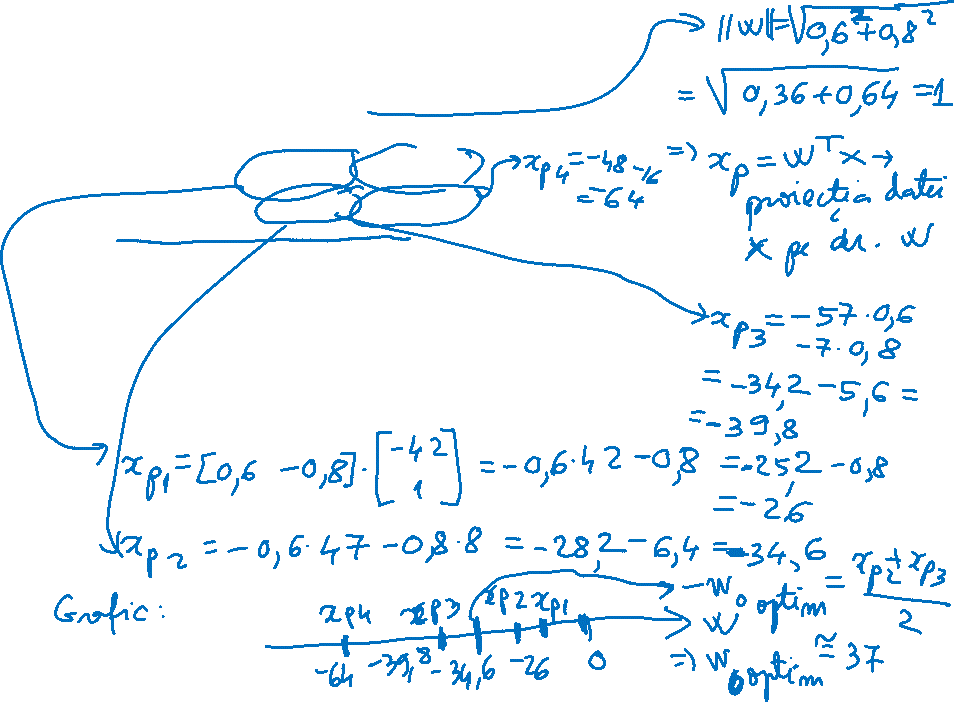 ||w||=√0,6²+0,8²
= √0,36+0,64 =1
xp4=-48-16 => xp = wᵀx →
=-64
proiecția datei
x pe dr. w
xp3=-57·0,6
-7·0,8
= -34,2 -5,6 =
=-39,8
xp1=[0,6 -0,8]·[-42 1] = -0,6·42-0,8 =-25,2 -0,8
=-26
xp2 = -0,6·47 -0,8·8 = -28,2-6,4 =-34,6
Grafic:
xp4 xp3 xp2 xp1
-64 -39,8 -34,6 -26 0
-w0 optim = xp2+xp3 / 2
w
=> w0 optim ≅ 37